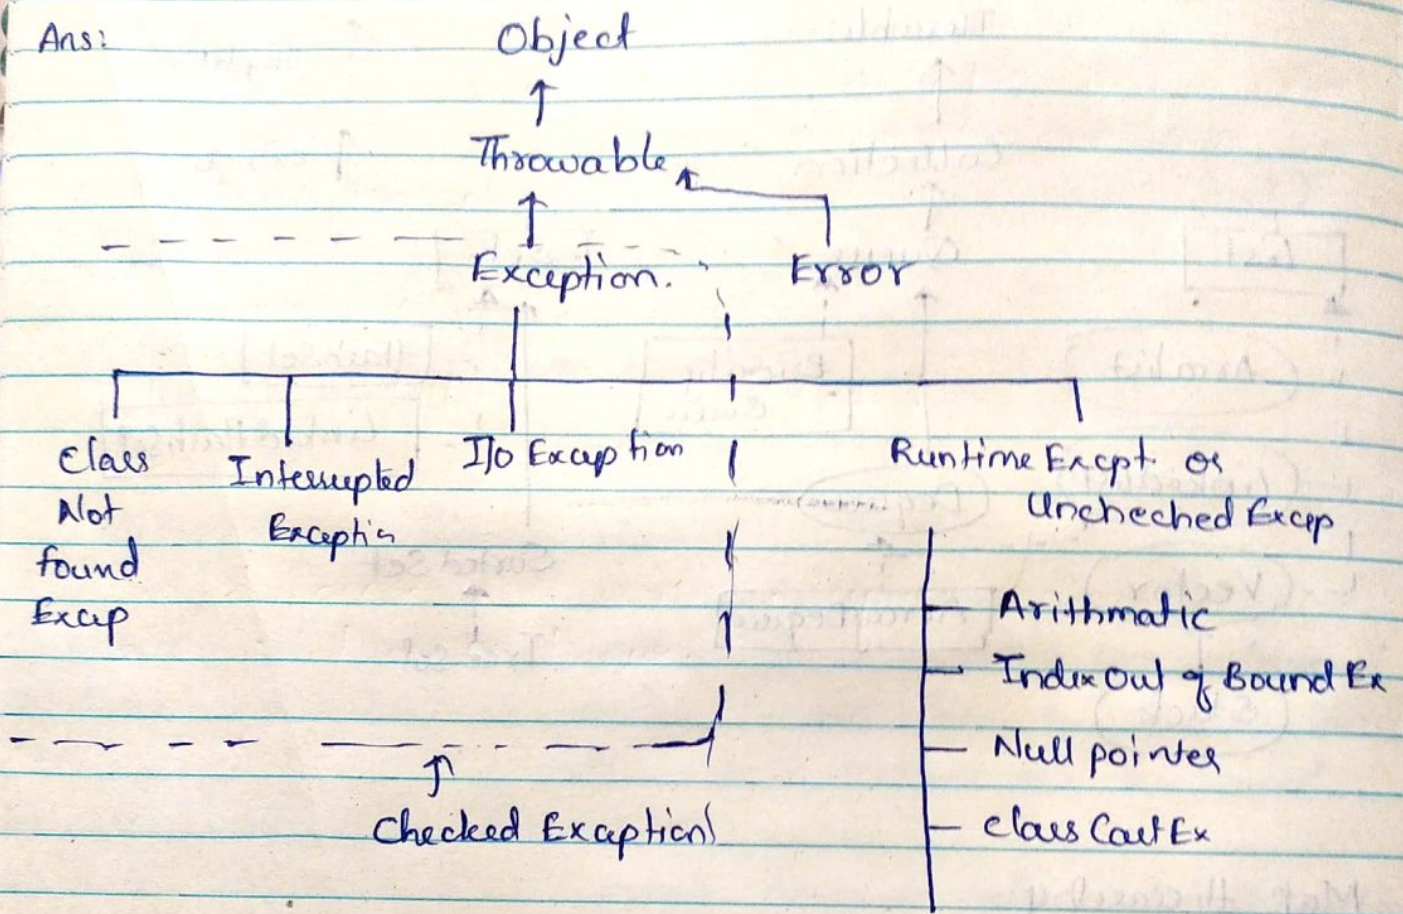 Ans:
Object
Throwable
Exception.
Error
Class
Not
found
Excep
Interrupted
Exception
I/O Exception
Runtime Excpt. or
Uncheched Excep
Arithmatic
Index Out of Bound Ex
Null pointer
Class Cast Ex
Checked Exceptions